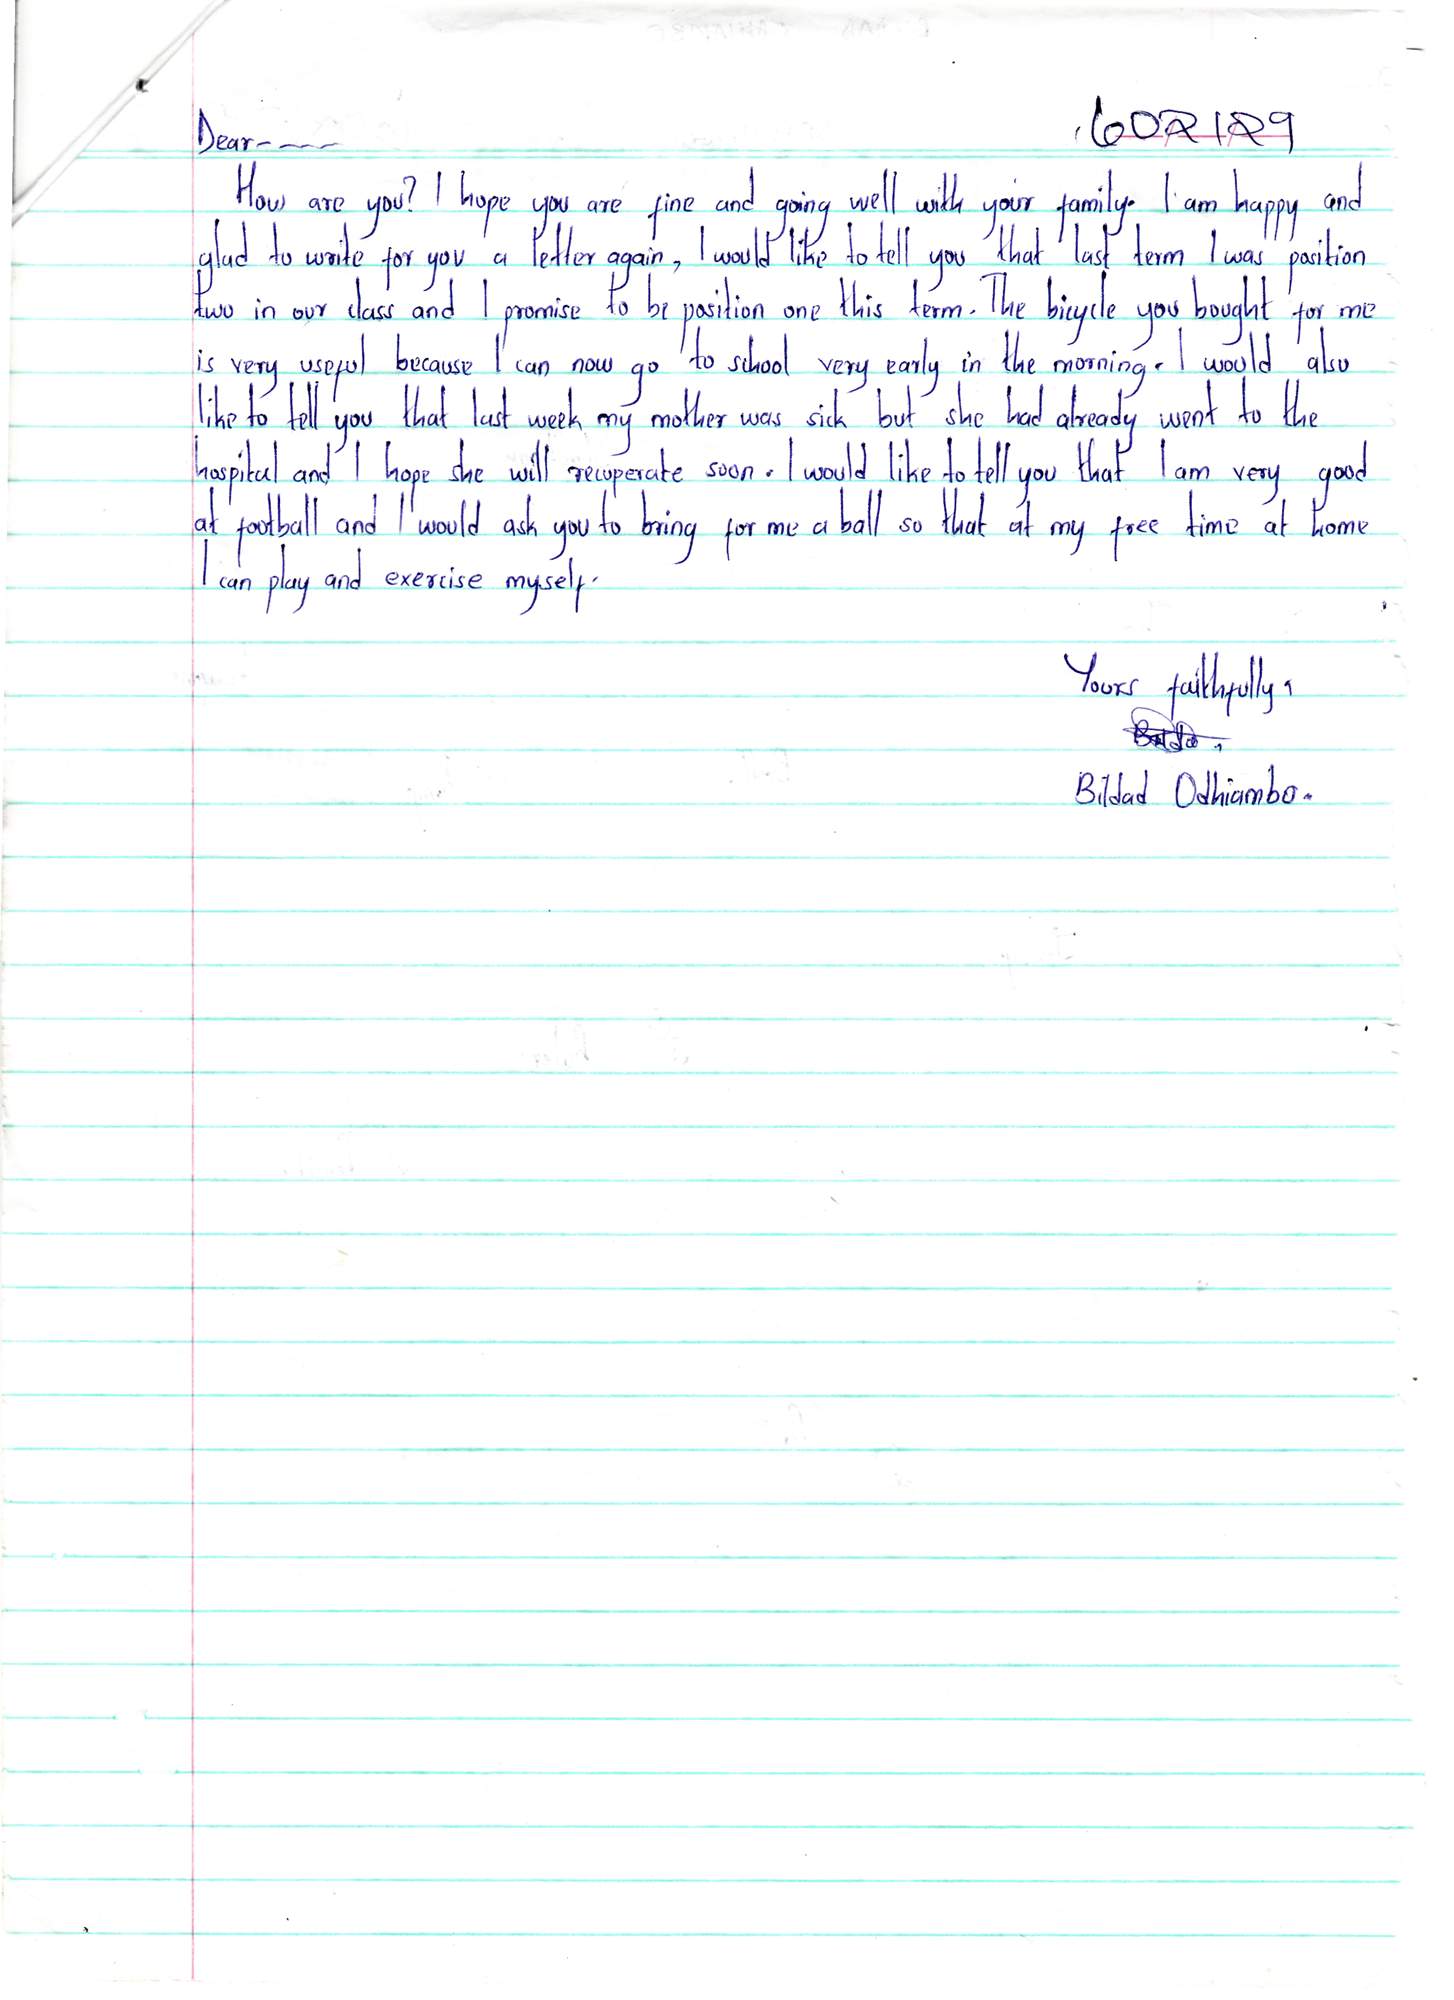 602129
Dear-----
How are you? I hope you are fine and going well with your family. I am happy and
glad to write for you a letter again, I would like to tell you that last term I was position
two in our class and I promise to be position one this term. The bicycle you bought for me
is very useful because I can now go to school very early in the morning. I would also
like to tell you that last week my mother was sick but she had already went to the
hospital and I hope she will recuperate soon. I would like to tell you that I am very good
at football and I would ask you to bring for me a ball so that at my free time at home
I can play and exercise myself.
Yours faithfully,
Bildad Odhiambo.